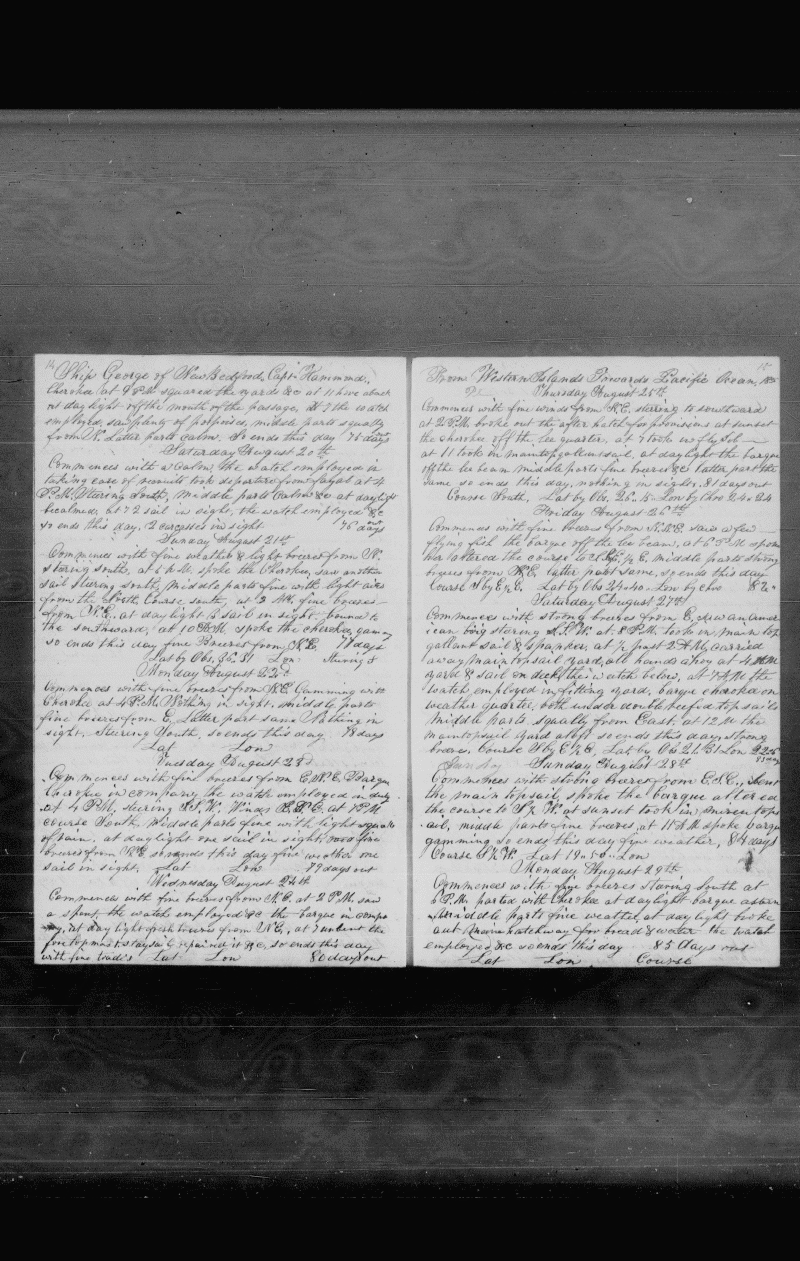 14
Ship George of New Bedford, Capt Hammond,
Cherokee at 9 PM squared the yards &c at 11 hove aback
at daylight off the mouth of the passage, at 7 the watch
employed, saw plenty of porpoises, middle parts squally
from N. Latter parts calm. So ends this day 75 days
Saturday August 20th
Commences with a Calm, the watch employed in
taking care of recruits took departure from fayal at 4
P.M. Steering South, Middle parts Calm &c at daylight
becalmed, at 7 2 sail in sight, the watch employed &c
so ends this day, 2 carcasses in sight 76 days out
Sunday August 21st
Commences with fine weather & light breezes from N.
stering south, at 6 P.M. spoke the Cherokee, saw another
sail steering south, middle parts fine with light airs
from the North, Course south, at 3 AM, fine breezes
from N.E. at daylight 3 sail in sight bound to
the southward, at 10 A.M. spoke the cherokee, gaming
so ends this day fine Breezes from N.E. 77 days
Lat by Obs, 35..31 Lon Stering S
Monday August 22d
Commences with fine breezes from N.E. Gamming with
Cherokee at 4 P.M. Nothing in sight. middle parts
fine breezes from E, Latter part same Nothing in
sight. Steering South, so ends this day. 78 days
Lat Lon
Tuesday August 23d
Commences with fine breezes from E.N.E. Barque
Cherokee in company, the watch employed in duty
at 4 PM, steering S.S.W. Winds E.N.E. at 7 PM
course South, middle parts fine with light squalls
of rain, at daylight one sail in sight, fine
breezes from N.E. so ends this day fine weather one
sail in sight, Lat Lon 79 days out
Wednesday August 24th
Commences with fine breezes from N.E. at 2 P.M. saw
a spout, the watch employed &c the barque in compa
ny, at day light fresh breezes from N.E., at 7 unbent the
fore topmast staysail, repaired it &c, so ends this day
with fine trades Lat Lon 80 days out
15
From Western Islands Towards Pacific Ocean,
Thursday August 25th
Commences with fine winds from N.E. sterring to southward
at 2 P.M. broke out the after hatch for provisions at sunset
the cherokee off the lee quarter, at 7 took in fly jib
at 11 took in maintopgallantsail, at daylight the barque
off the lee beam middle parts fine breezes &c latter part the
same so ends this day, nothing in sight. 81 days out
Course South, Lat by Obs. 26..15 Lon by Chro 24..24
Friday August 26th
Commences with fine breezes from N.N.E. saw a few
flying fish the barque off the lee beam, at 6 P.M. spoke
her altered the course to S.E. 1/2 E, middle parts strong
breezes from N.E. latter part same, so ends this day
Course S by E 1/2 E. Lat by Obs 24..40.. Lon by chro 82
Saturday August 27th
Commences with strong breezes from E, saw an Amer
ican brig stering N.N.W. at 8 P.M. took in, main top
gallant sail & spanker, at 1/2 past 2 A.M, carried
away main topsail yard, all hands ahoy at 4 AM
yard & sail on deck, the watch below, at 7 A.M the
watch employed in fitting yard, barque cherokee on
weather quarter, both under double reefed topsails
Middle parts squally from East, at 12 M the
maintopsail yard aloft so ends this day strong
breezes. Course S by E 1/2 E, Lat by Obs 21..31 Lon
83 days
Sunday Sunday August 28th
Commences with strong breezes from E.N.E., bent
the main topsail, spoke the barque altered
the course to S 1/2 W. at sunset took in mizentops
ail, middle parts fine breezes, at 11 A.M spoke barque
gamming so ends this day fine weather, 84 days
Course S 1/2 W. Lat 19..50.. Lon
Monday August 29th
Commences with fine breezes stering South at
6 P.M. parted with cherokee at daylight barque astern
middle parts fine weather, at day light broke
out main hatchway for bread & water the watch
employed &c so ends this day 85 days out
Lat Lon Course